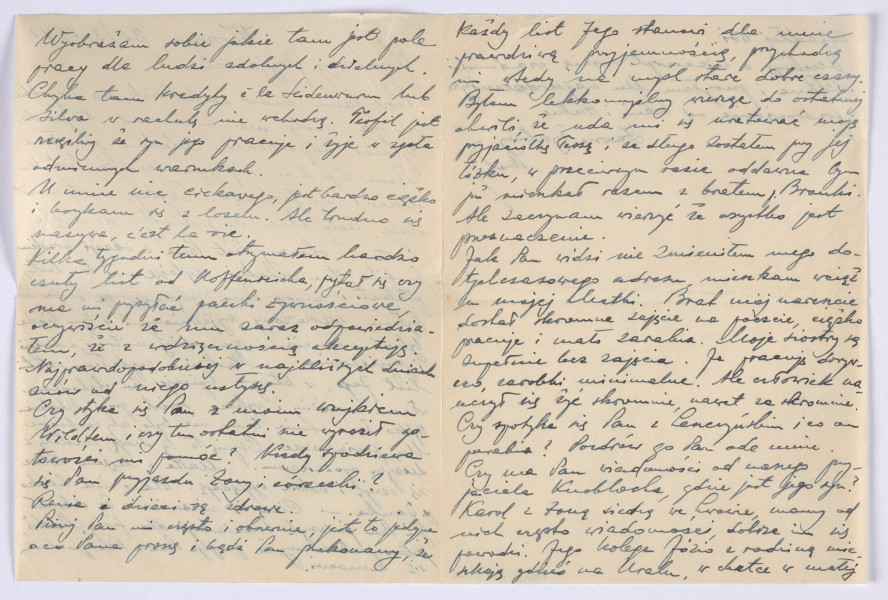 Wyobrażam sobie jakie tam jest pole
pracy dla ludzi zdolnych i dzielnych.
Chyba tam kredyty à la Seidenwurm lub
Silva w rachubę nie wchodzą. Teofil jest
szczęśliwy że syn jego pracuje i żyje w zgoła
odmiennych warunkach.
U mnie nic ciekawego, jest bardzo ciężko
i borykam się z losem. Ale trudno się
nazywa, c'est la vie.
Kilka tygodni temu otrzymałem bardzo
czuły list od Hoffenreicha, pytał się czy
ma mi przysyłać paczki żywnościowe,
oczywiście że mu zaraz odpowiedzia-
łem, że z wdzięcznością akceptuję.
Najprawdopodobniej w najbliższych dniach
znów od niego usłyszę.
Czy styka się Pan z moim wujkiem
Witoldem i czy ten ostatni nie zgłosił go-
towości mi pomóc? Kiedy spodziewa
się Pan przyjazdu żony i córeczki?
Renia i dzieci są zdrowe.
Pisuj Pan mi często i obszernie, jest to jedyne
o co Pana proszę i bądź Pan przekonany, że
każdy list Jego stanowi dla mnie
prawdziwą przyjemnością, przychodzą
mi wtedy na myśl stare dobre czasy.
Byłem lekkomyślny wierząc do ostatniej
chwili że uda mi się uratować moją
przyjaciółkę Tessę i za długo zostałem przy jej
łóżku, w przeciwnym razie oddawna bym
już mieszkał razem z bratem,
Ale zaczynam wierzyć że wszystko jest
przeznaczenie.
Jak Pan widzi nie zmieniłem mego do-
tychczasowego adresu, mieszkam wciąż
u mojej Matki. Brat mój nareszcie
dostał skromne zajęcie na poczcie, ciężko
pracuje i mało zarabia. Moje siostry są
zupełnie bez zajęcia. Ja pracuję doryw-
czo, zarobki minimalne. Ale człowiek na-
uczył się żyć skromnie, nawet za skromnie.
Czy spotyka się Pan z Lenczyńskim i co on
porabia? Pozdrów go Pan ode mnie.
Czy ma Pan wiadomości od naszego przy-
jaciela Knoblocha, gdzie jest jego syn?
Karol z żoną siedzą we Lwowie, mamy od
nich często wiadomości, dobrze im się
powodzi. Jego kolega Józio z rodziną mie-
szkają gdzieś na Uralu, w chatce w małej